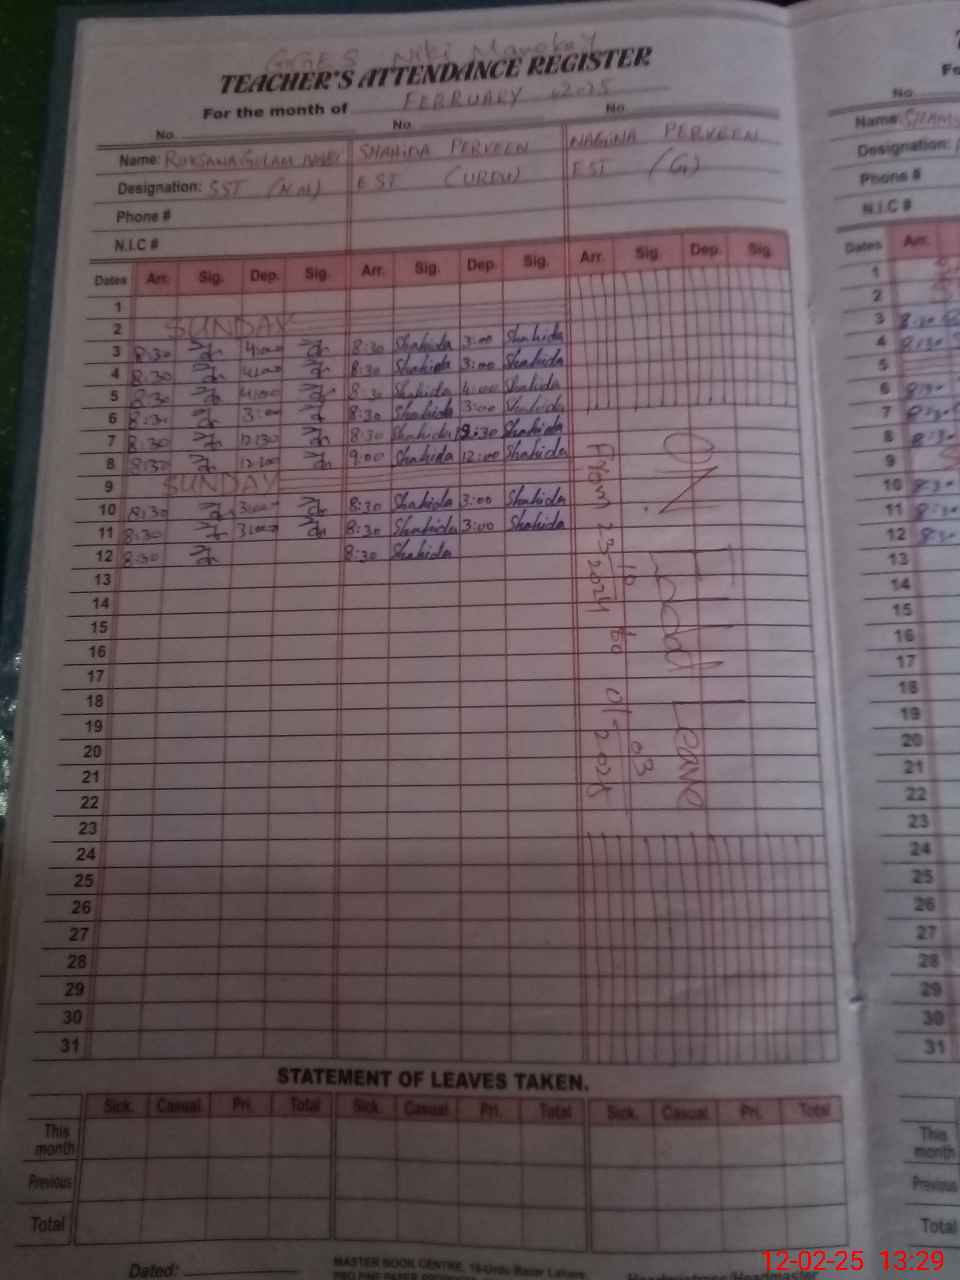 GGES Niki Manokay
TEACHER'S ATTENDANCE REGISTER
For the month of FEBRUARY 2025
No. No. No.
Name: RUKSANA GULAM NABI SHAHIDA PERVEEN NAGINA PERVEEN
Designation: SST EST (URDU) EST (G)
Phone #
N.I.C #
Dates Arr. Sig. Dep. Sig. Arr. Sig. Dep. Sig. Arr. Sig. Dep. Sig.
1
2 SUNDAY
3 8:30 4:00 8:30 Shahida 3:00 Shahida
4 8:30 4:00 8:30 Shahida 3:00 Shahida
5 8:30 4:00 8:30 Shahida 4:00 Shahida
6 8:30 3:00 8:30 Shahida 3:00 Shahida
7 8:30 12:30 8:30 Shahida 12:30 Shahida
8 8:30 12:00 9:00 Shahida 12:00 Shahida
9 SUNDAY
10 8:30 3:00 8:30 Shahida 3:00 Shahida
11 8:30 3:00 8:30 Shahida 3:00 Shahida
12 8:30 8:30 Shahida
13
14
15
16
17
18
19
20
21
22
23
24
25
26
27
28
29
30
31
ON Leave
From 23-10-2024 to 01-03-2025
STATEMENT OF LEAVES TAKEN.
Sick. Casual Pri. Total Sick. Casual Pri. Total Sick. Casual Pri. Total
This month
Previous
Total
Dated:
MASTER BOOK CENTRE, Urdu Bazar Lahore
Headmistress/Headmaster
No
Name:
Designation:
Phone #
N.I.C #
Dates Arr.
1
2
3 8:30
4 8:30
5
6 8:30
7 8:30
8 8:30
9
10 8:30
11 8:30
12 8:30
13
14
15
16
17
18
19
20
21
22
23
24
25
26
27
28
29
30
31
This month
Previous
Total
12-02-25 13:29